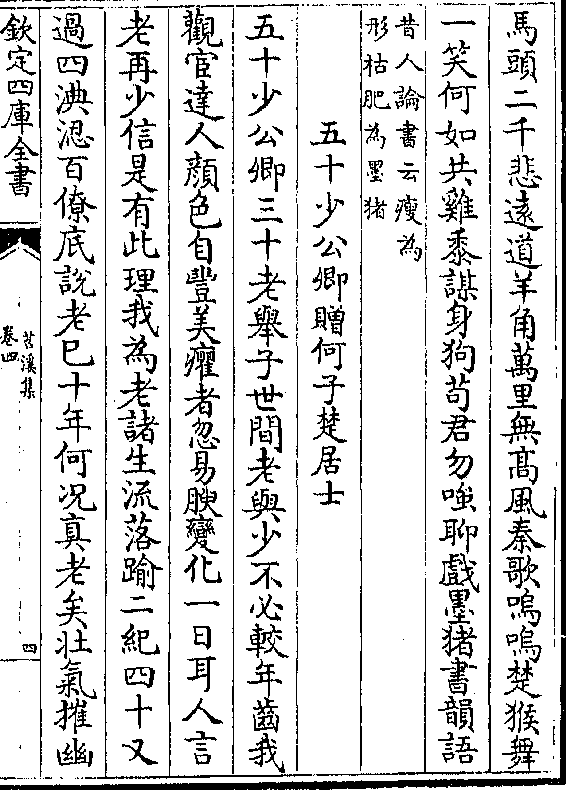 馬頭二千悲遠道羊角萬里無髙風秦歌嗚嗚楚猴舞
一笑何如共雞黍謀身狗苟君勿嗤聊戲墨猪書韻語
昔人論書云瘦為
形枯肥為墨猪
五十少公卿贈何子楚居士
五十少公卿三十老舉子世間老與少不必較年齒我
觀宦達人顔色自豐美癯者忽易腴變化一日耳人言
老再少信是有此理我為老諸生流落踰二紀四十又
過四淟涊百僚底説老已十年何况真老矣壯氣摧幽
欽定四庫全書
苕溪集
卷四
四